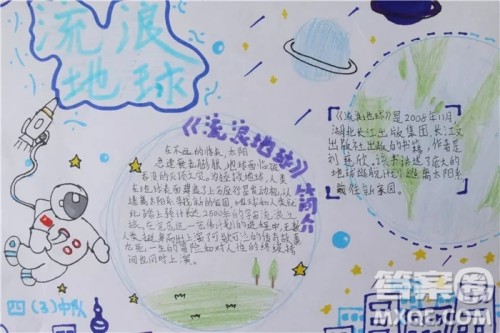 流浪
地球
《流浪地球》
简介
在不远的将来,太阳
急速衰老膨胀,地球面临被
吞没的灭顶之灾。为拯救地球,人类
在地球表面建造了上万座行星发动机,以
逃离太阳系寻找新的家园,地球和人类就
此踏上预计长达2500年的宇宙流浪之
旅。在
《流浪地球》是2008年11月
湖北长江出版集团、长江文
艺出版社出版的书籍,作者是
刘慈欣。该书描述了庞大的
地球逃脱计划,逃离太阳系
前往新家园。
四(3)中队
答案圈
MXQE.COM